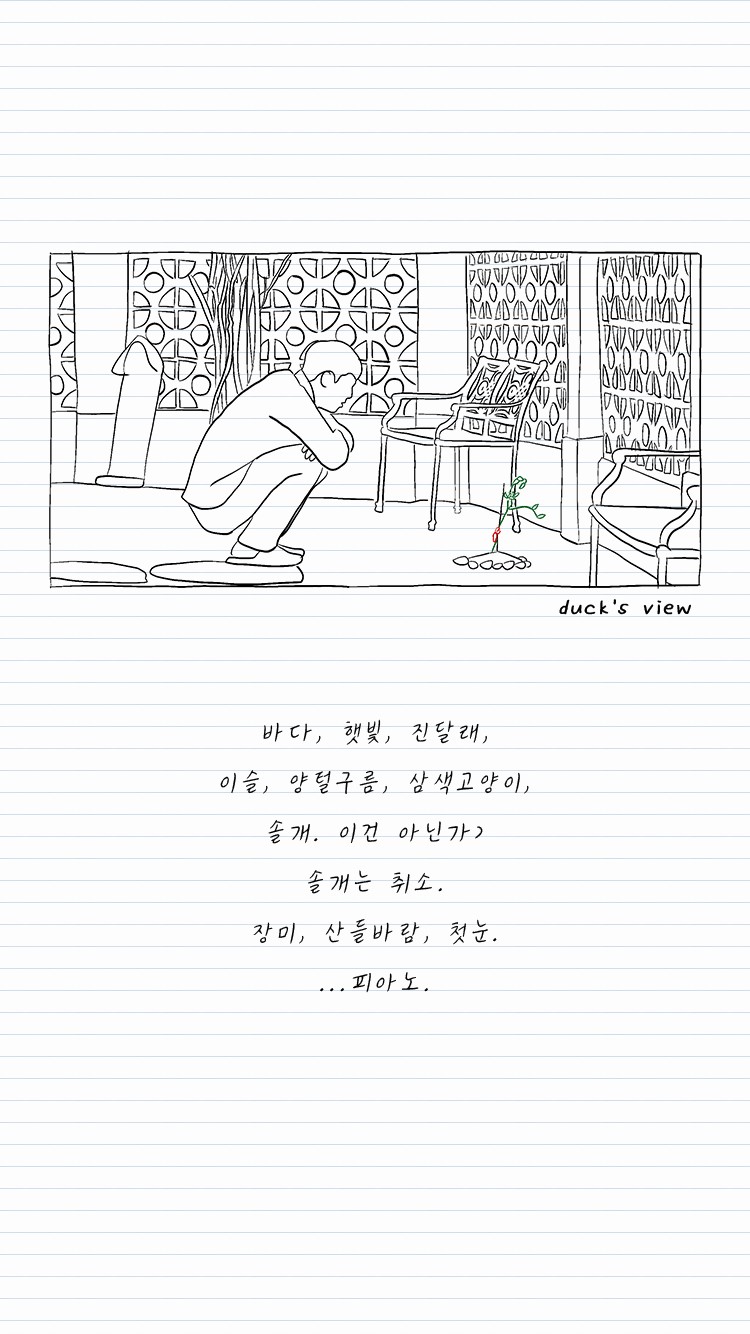 duck's view
바다, 햇빛, 진달래,
이슬, 양털구름, 삼색고양이,
솔개. 이건 아닌가?
솔개는 취소.
장미, 산들바람, 첫눈.
...피아노.